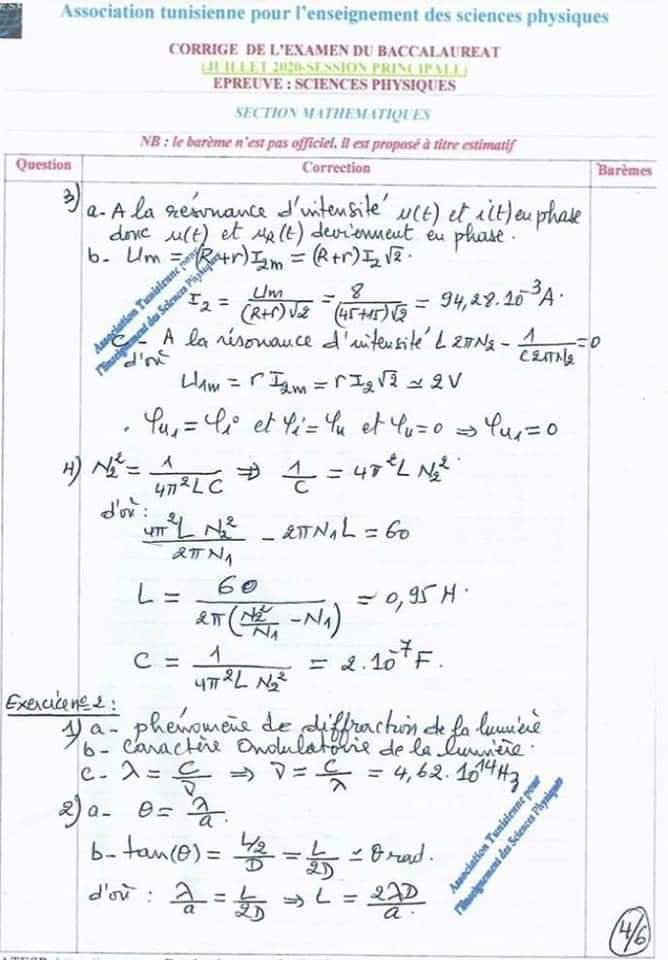 Association tunisienne pour l'enseignement des sciences physiques
CORRIGE DE L'EXAMEN DU BACCALAUREAT
(JUILLET 2020-SESSION PRINCIPALE)
EPREUVE : SCIENCES PHYSIQUES
SECTION MATHEMATIQUES
NB : le barème n'est pas officiel. il est proposé à titre estimatif
Question Correction Barèmes
3) a- A la résonance d'intensité u(t) et i(t) en phase
donc u(t) et u_R(t) deviennent en phase.
b- Um = (R+r)I₂m = (R+r)I₂√2.
I₂ = Um/((R+r)√2) = 8/((45+15)√2) = 94,28.10⁻³A.
c- A la résonance d'intensité L2πN₂ - 1/(C2πN₂) = 0
d'où
U₁m = rI₂m = rI₂√2 ≃ 2V
. φu₁ = φi et φi = φu et φu = 0 ⇒ φu₁ = 0
4) N₂² = 1/(4π²LC) ⇒ 1/C = 4π²LN₂²
d'où :
4π²LN₂²/(2πN₁) - 2πN₁L = 60
L = 60/(2π(N₂²/N₁ - N₁)) = 0,95H.
C = 1/(4π²LN₂²) = 2.10⁻⁷F.
Exercice n°2 :
1) a- phénomène de diffraction de la lumière
b- caractère ondulatoire de la lumière.
c- λ = C/ν ⇒ ν = C/λ = 4,62.10¹⁴Hz
2) a- θ = λ/a.
b- tan(θ) = (L/2)/D = L/2D ≃ θ rad.
d'où : λ/a = L/2D ⇒ L = 2λD/a.
4/6
Association Tunisienne pour
l'enseignement des Sciences Physiques
Association Tunisienne pour
l'enseignement des Sciences Physiques